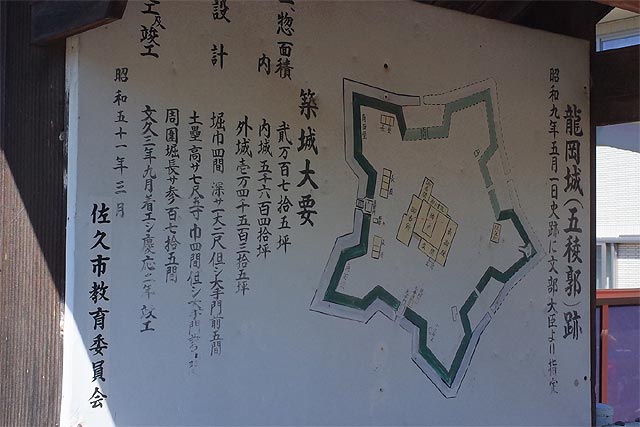 龍岡城(五稜郭)跡
昭和九年五月一日史跡に文部大臣より指定
築城大要
惣面積 貳万百七拾五坪
内 内城五千六百四拾坪
外城壱万四千五百三拾五坪
設計 堀巾四間 深サ一丈二尺但シ大手門前五間
土塁高サ七尺 巾四間但シ大手門
周囲堀長サ参百七拾五間
工及竣工 文久三年九月着工シ慶応二年 竣工
昭和五十一年三月
佐久市教育委員会